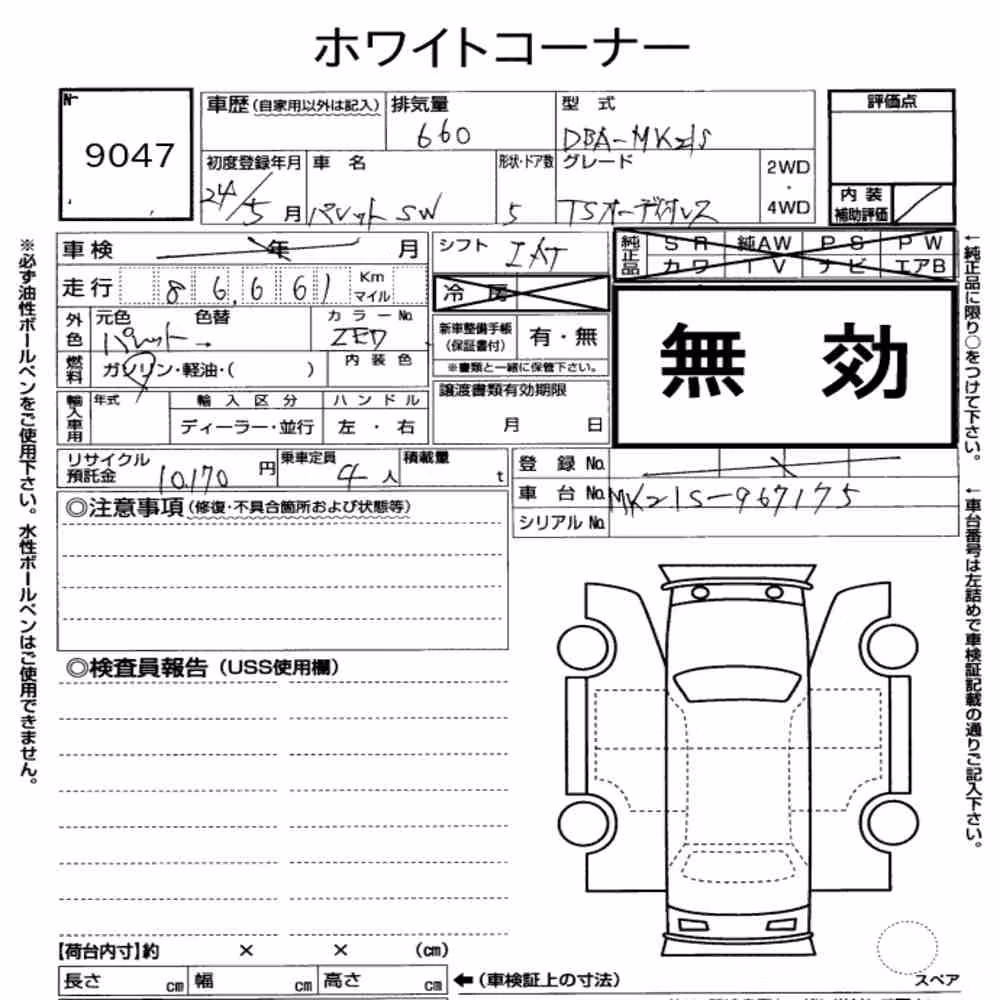 ホワイトコーナー
No
9047
車歴 (自家用以外は記入)
排気量
660
型 式
DBA-MK21S
評価点
初度登録年月
24/5 月
車 名
パレット SW
形状・ドア数
5
グレード
TSオーディオレス
2WD
・
4WD
内 装
補助評価
車 検
年 月
シフト
IAT
純正品
S R 純AW P S P W
カ ワ T V ナ ビ エアB
走 行
8 6,661
Km
マイル
冷 房
外色
元色
パレット →
色替
カラーNo.
ZED
新車整備手帳
(保証書付)
有・無
※書類と一緒に保管下さい。
無 効
燃料
ガソリン・軽油・( )
内 装 色
譲渡書類有効期限
月 日
輸入車用
年式
輸 入 区 分
ディーラー・並行
ハ ン ド ル
左 ・ 右
リサイクル
預託金
10,170 円
乗車定員
4 人
積載量
t
登 録 No.
車 台 No. MK21S-967175
シリアル No.
◎注意事項 (修復・不具合箇所および状態等)
◎検査員報告 (USS使用欄)
【荷台内寸】約 × × (cm)
長さ cm 幅 cm 高さ cm
← (車検証上の寸法)
スペア
※必ず油性ボールペンをご使用下さい。水性ボールペンはご使用できません。
←純正品に限り○をつけて下さい。
←車台番号は左詰めで車検証記載の通りご記入下さい。